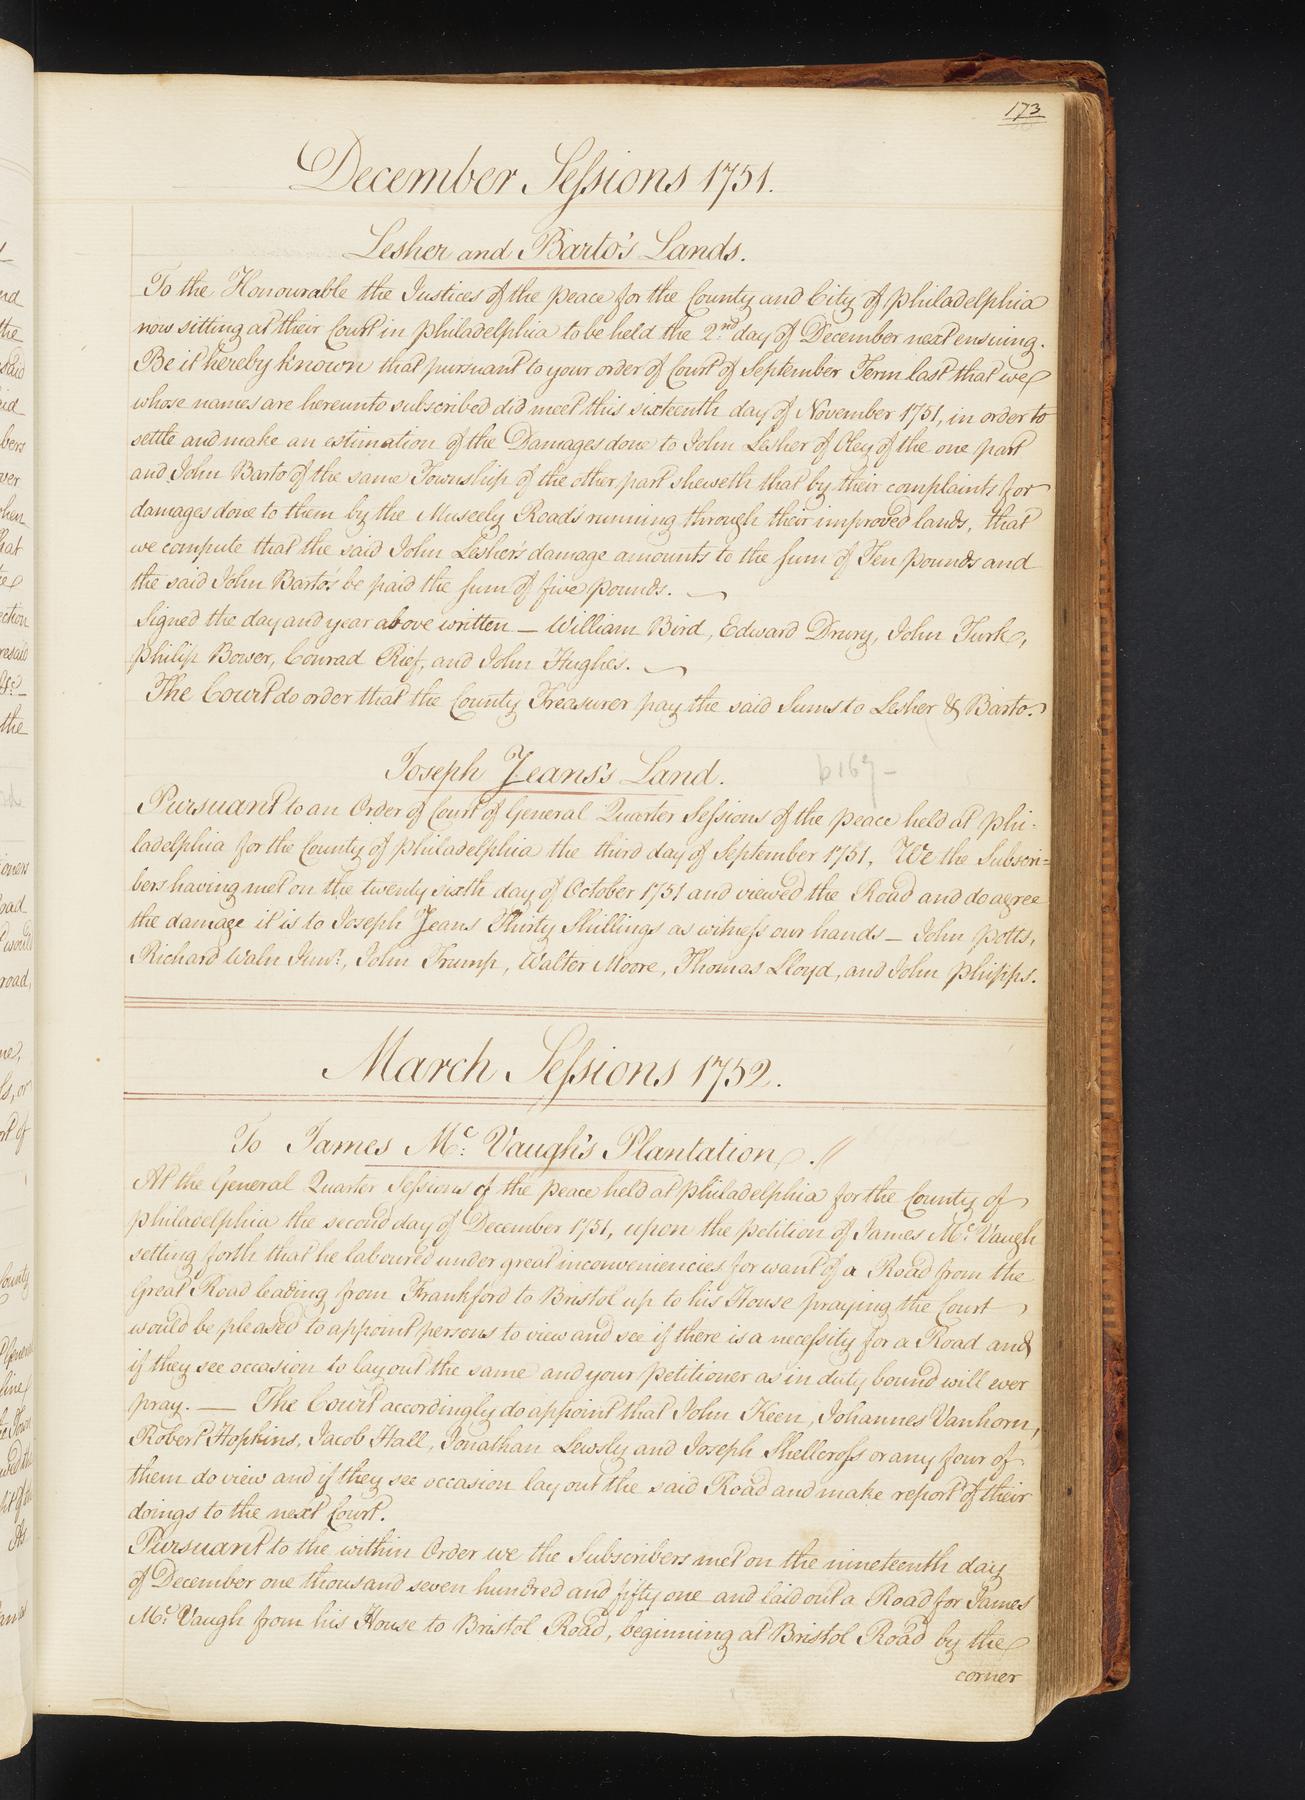 173
December Sessions 1751.
Lesher and Barto's Lands.
To the Honourable the Justices of the Peace for the County and City of Philadelphia
now sitting at their Court in Philadelphia to be held the 2.nd day of December next ensuing.
Be it hereby known that pursuant to your order of Court of September Term last that we
whose names are hereunto subscribed did meet this sixteenth day of November 1751, in order to
settle and make an estimation of the Damages done to John Lesher of Oley of the one part
and John Barto of the same Township of the other part sheweth that by their complaints for
damages done to them by the Museely Road's running through their improved lands, that
we compute that the said John Lesher's damage amounts to the sum of Ten pounds and
the said John Barto's be paid the sum of five pounds.
Signed the day and year above written — William Bird, Edward Drury, John Turk,
Philip Bower, Conrad Rief, and John Hughes.
The Court do order that the County Treasurer pay the said Sums to Lesher & Barto.
Joseph Jeans's Land.
p 169 -
Pursuant to an Order of Court of General Quarter Sessions of the peace held at Phi-
ladelphia for the County of Philadelphia the third day of September 1751, We the Subscri=
bers having met on the twenty sixth day of October 1751 and viewed the Road and do agree
the damage it is to Joseph Jeans Thirty Shillings as witness our hands — John Potts,
Richard Waln Junr., John Trump, Walter Moore, Thomas Lloyd, and John Phipps.
March Sessions 1752.
To James Mc. Vaugh's Plantation. //
At the General Quarter Sessions of the peace held at Philadelphia for the County of
Philadelphia the second day of December 1751, upon the petition of James Mc. Vaugh
setting forth that he laboured under great inconveniencies for want of a Road from the
Great Road leading from Frankford to Bristol up to his House praying the Court
would be pleased to appoint persons to view and see if there is a necessity for a Road and
if they see occasion to lay out the same and your Petitioner as in duty bound will ever
pray. — The Court accordingly do appoint that John Keen, Johannes Vanhorn,
Robert Hopkins, Jacob Hall, Jonathan Lewsly and Joseph Shellcross or any four of
them do view and if they see occasion lay out the said Road and make report of their
doings to the next Court.
Pursuant to the within Order we the Subscribers met on the nineteenth day
of December one thousand seven hundred and fifty one and laid out a Road for James
Mc. Vaugh from his House to Bristol Road, beginning at Bristol Road by the
corner